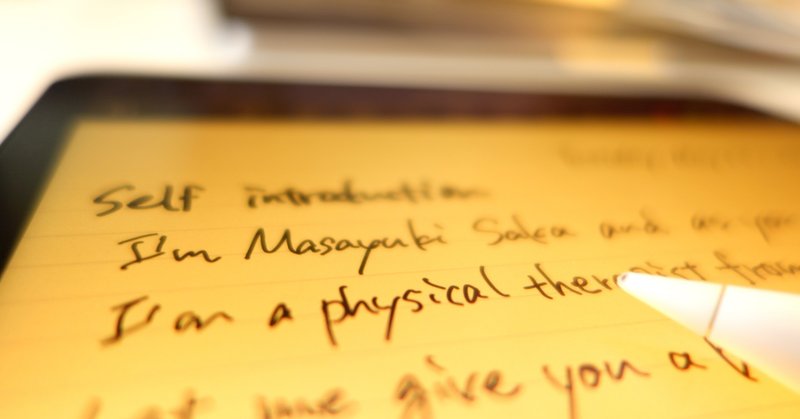 Self introduction
I'm Masayuki Saka and as you
I'm a physical therapist from
Let me give you a